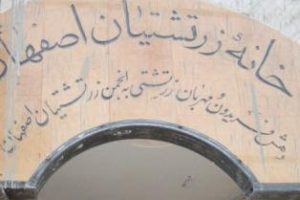 خانهٔ زرتشتیان اصفهان
دهش فریدون و مهربان زرتشتی به انجمن زرتشتیان اصفهان